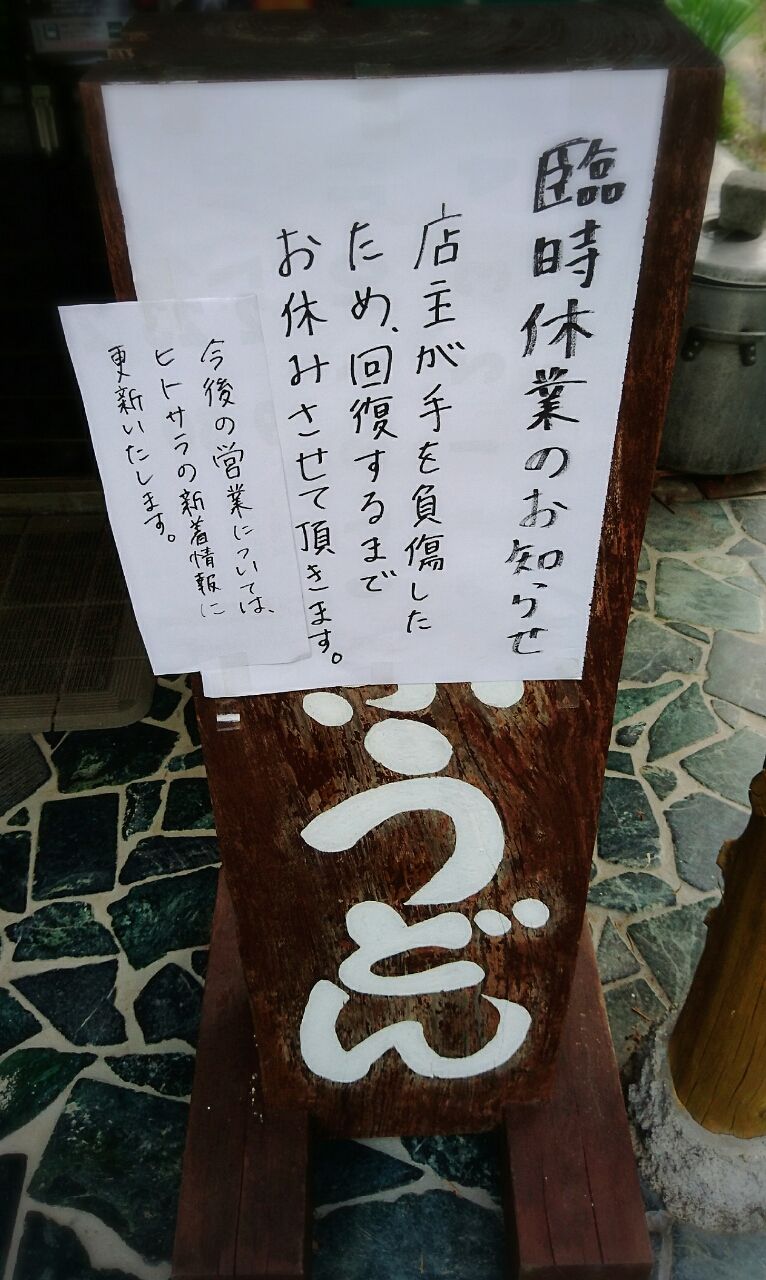 臨時休業のお知らせ
店主が手を負傷した
ため、回復するまで
お休みさせて頂きます。
今後の営業については、
ヒトサラの新着情報に
更新いたします。
うどん